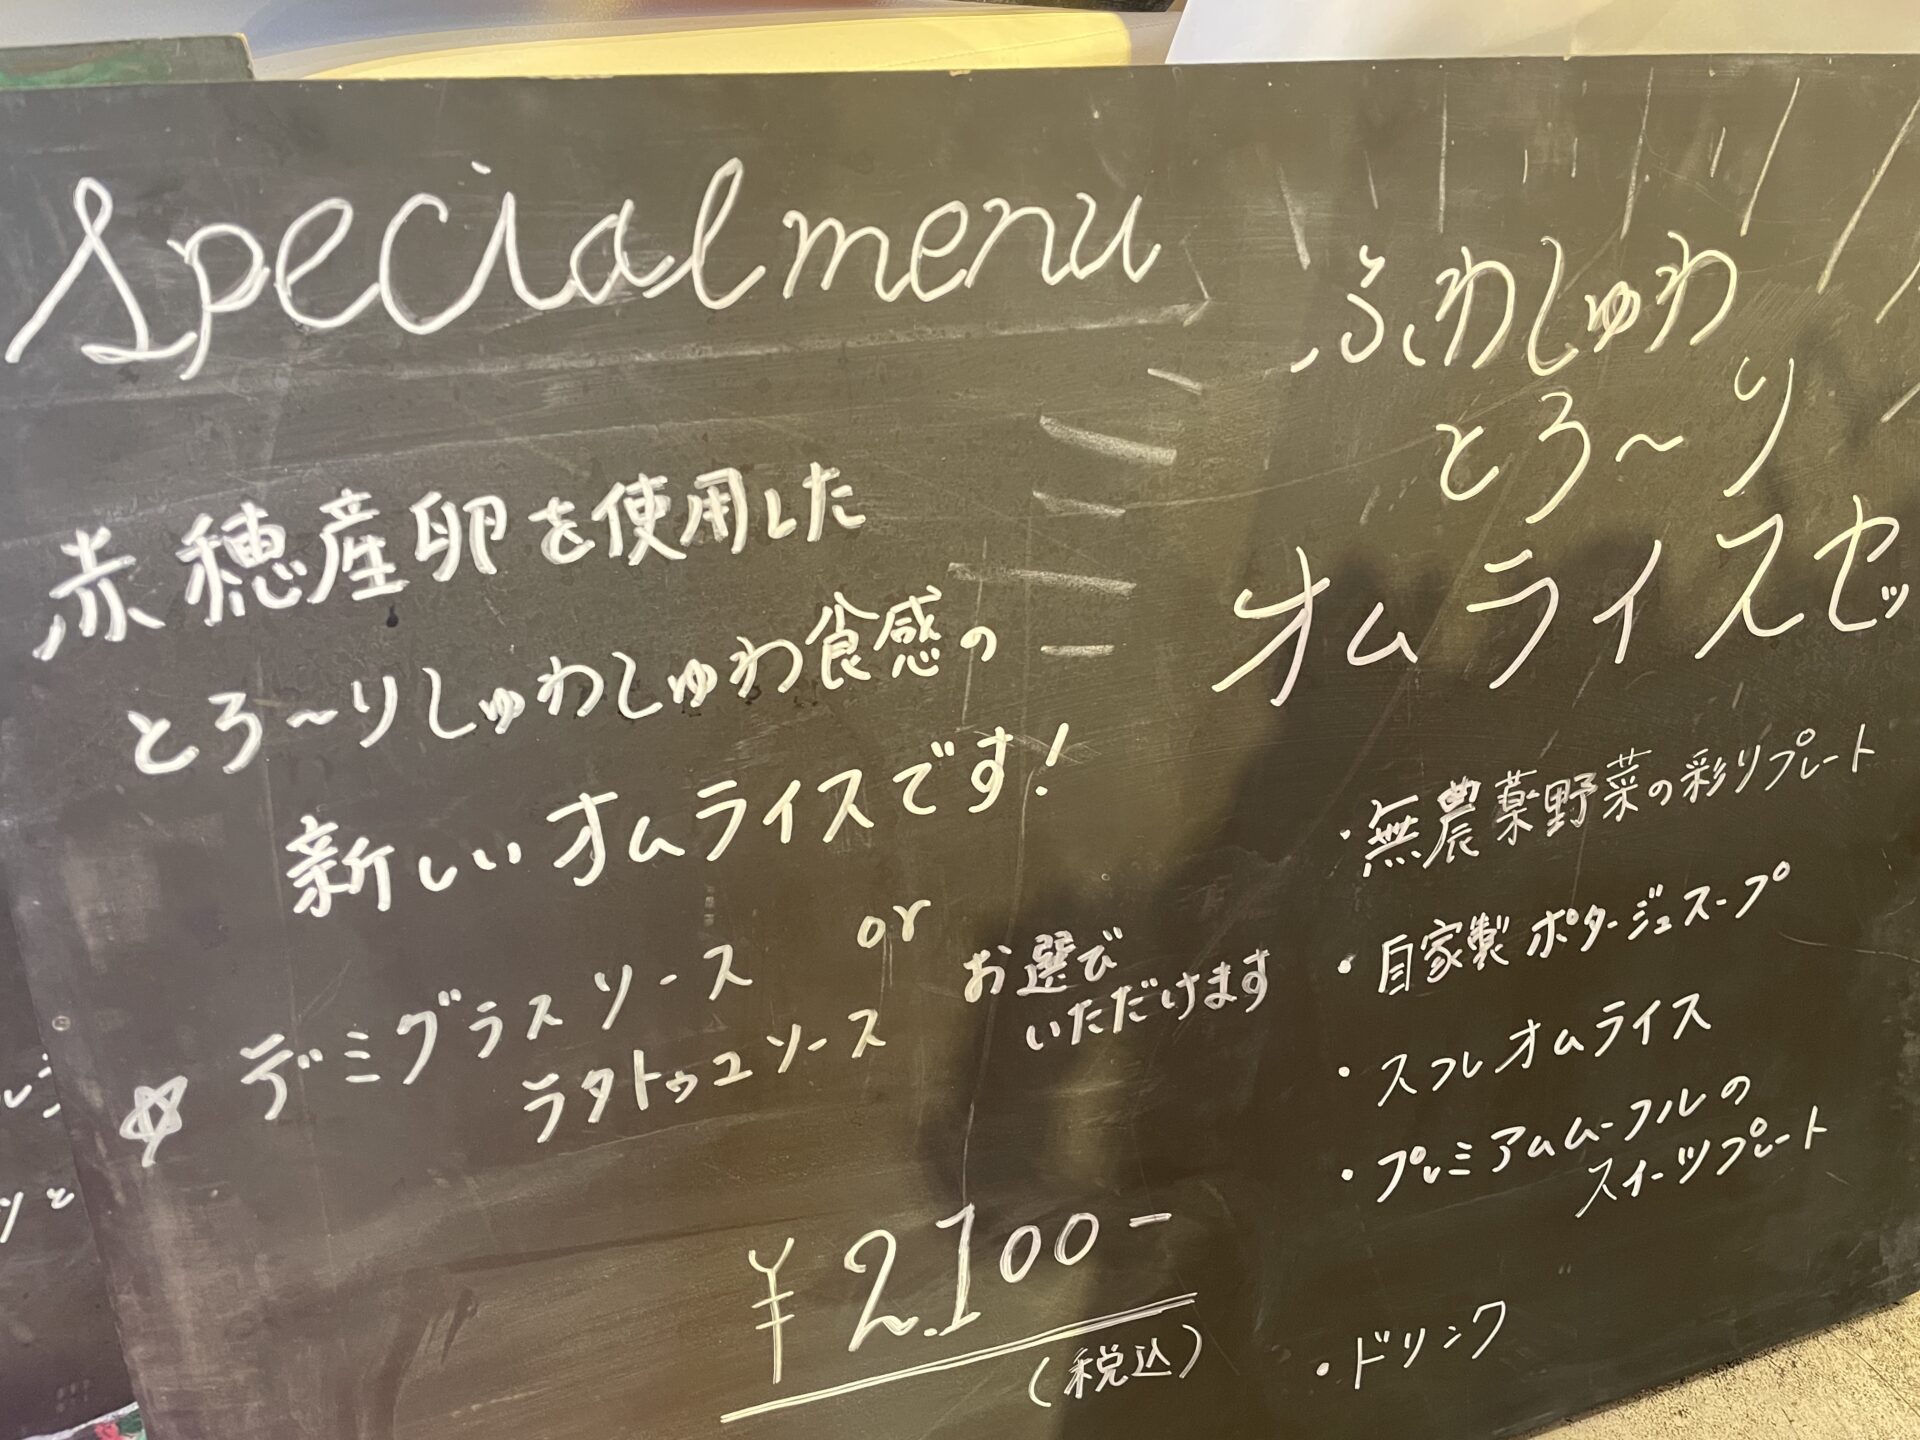 Special menu
赤穂産卵を使用した
とろ〜りしゅわしゅわ食感の
新しいオムライスです!
☆ デミグラスソース or
ラタトゥユソース
お選び
いただけます
¥2.100-
(税込)
ふわしゅわ
とろ〜り
オムライスセッ
・無農薬野菜の彩りプレート
・自家製ポタージュスープ
・スフレオムライス
・プレミアムムーフルの
スイーツプレート
・ドリンク